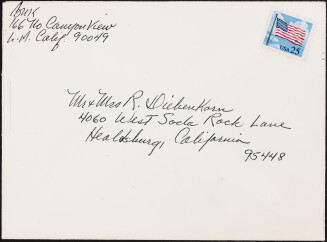 166 No Canyon View
L.A. Calif 90049
USA 25
Mr & Mrs R. Diebenkorn
4060 West Soda Rock Lane
Healdsburg, California
95448